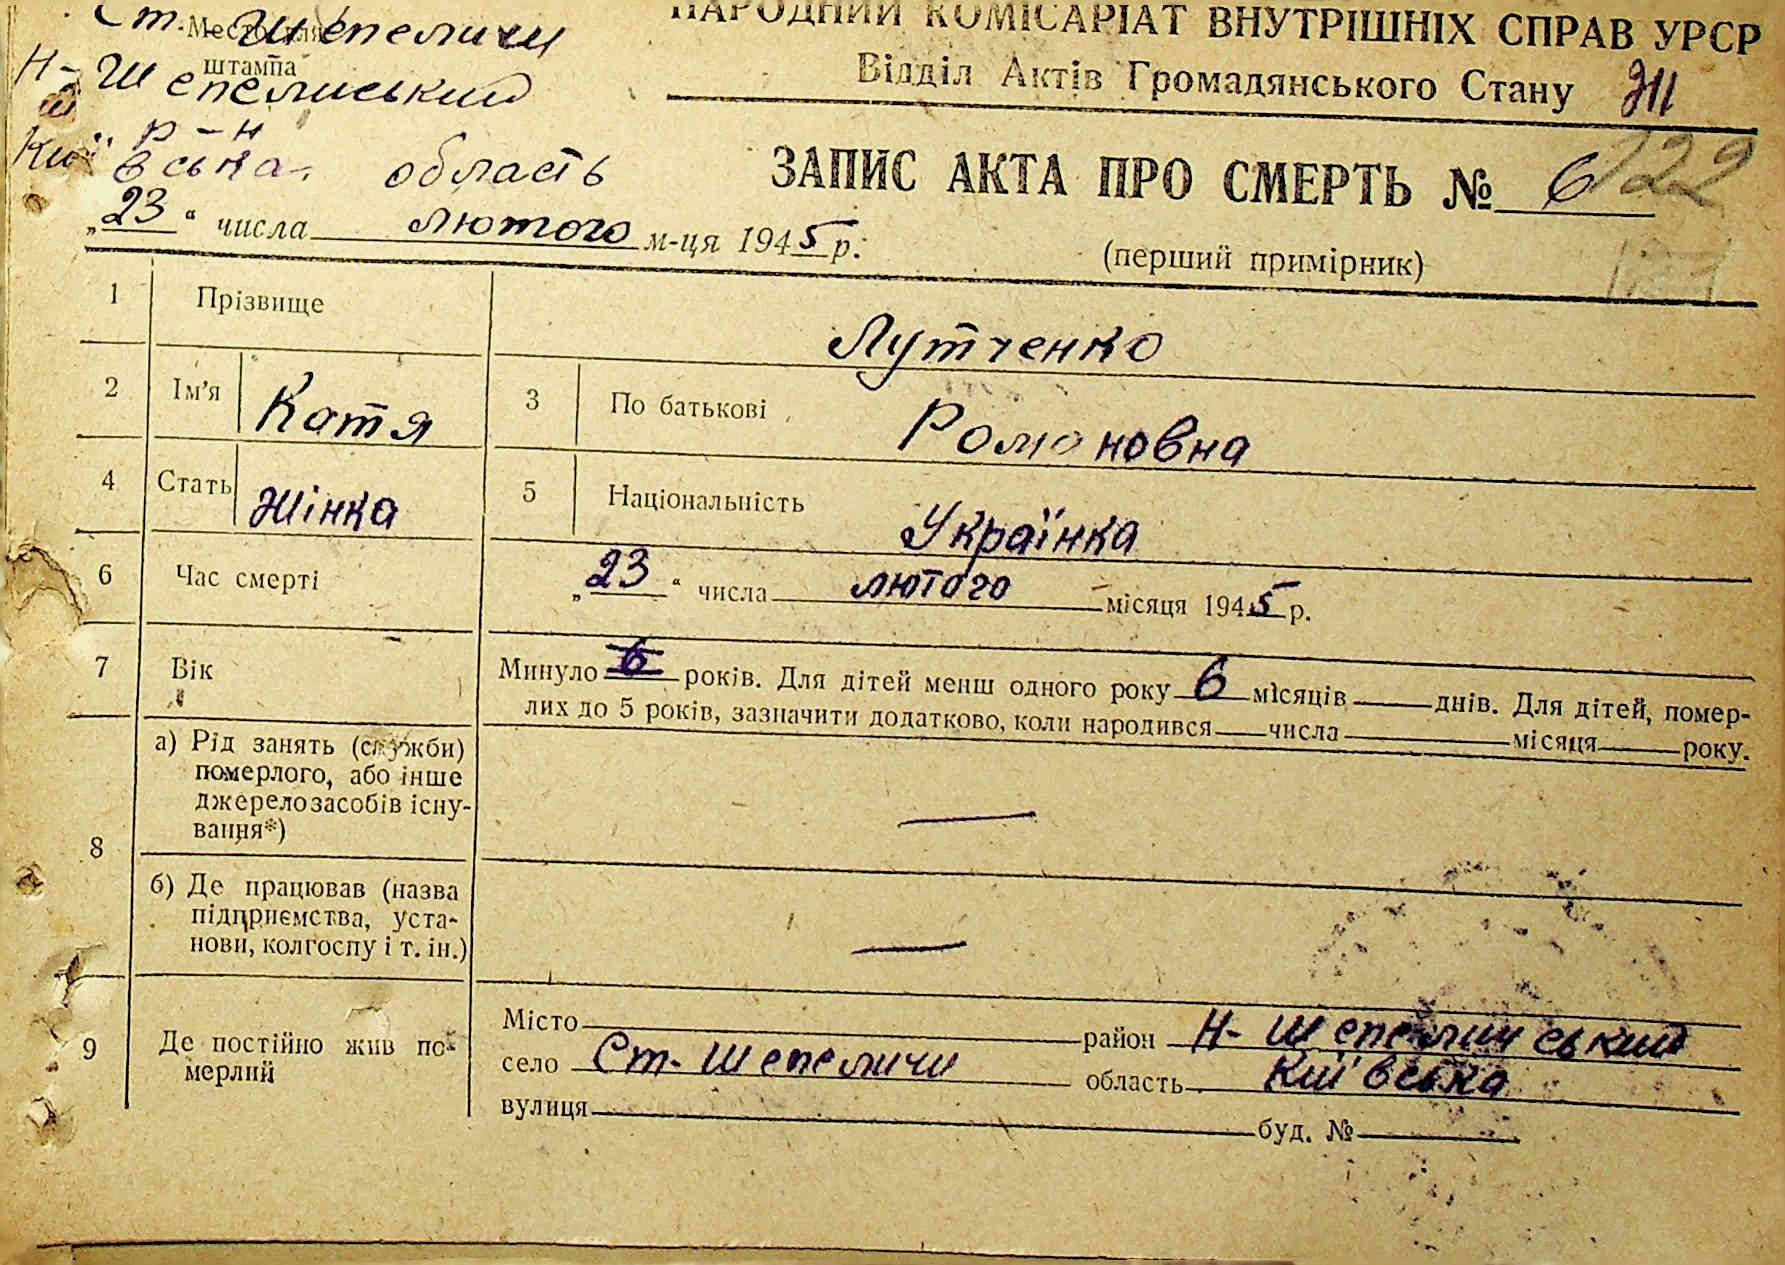 Ст. Шепеличи
Место для
штампа
Н-Шепелиський
р-н
Київська область
НАРОДНИЙ КОМІСАРІАТ ВНУТРІШНІХ СПРАВ УРСР
Відділ Актів Громадянського Стану
ЗАПИС АКТА ПРО СМЕРТЬ № 6
122
„23" числа лютого м-ця 1945 р.
(перший примірник)
1 Прізвище Лутченко
2 Ім'я Катя 3 По батькові Романовна
4 Стать Жінка 5 Національність Українка
6 Час смерті „23" числа лютого місяця 1945 р.
7 Вік Минуло 6 років. Для дітей менш одного року 6 місяців — днів. Для дітей, помер-
лих до 5 років, зазначити додатково, коли народився — числа — місяця — року.
8 а) Рід занять (служби)
померлого, або інше
джерело засобів існу-
вання*) —
б) Де працював (назва
підприємства, уста-
нови, колгоспу і т. ін.) —
9 Де постійно жив по-
мерлий
Місто район Н-Шепеличський
село Ст-Шепеличи область Київська
вулиця буд. №